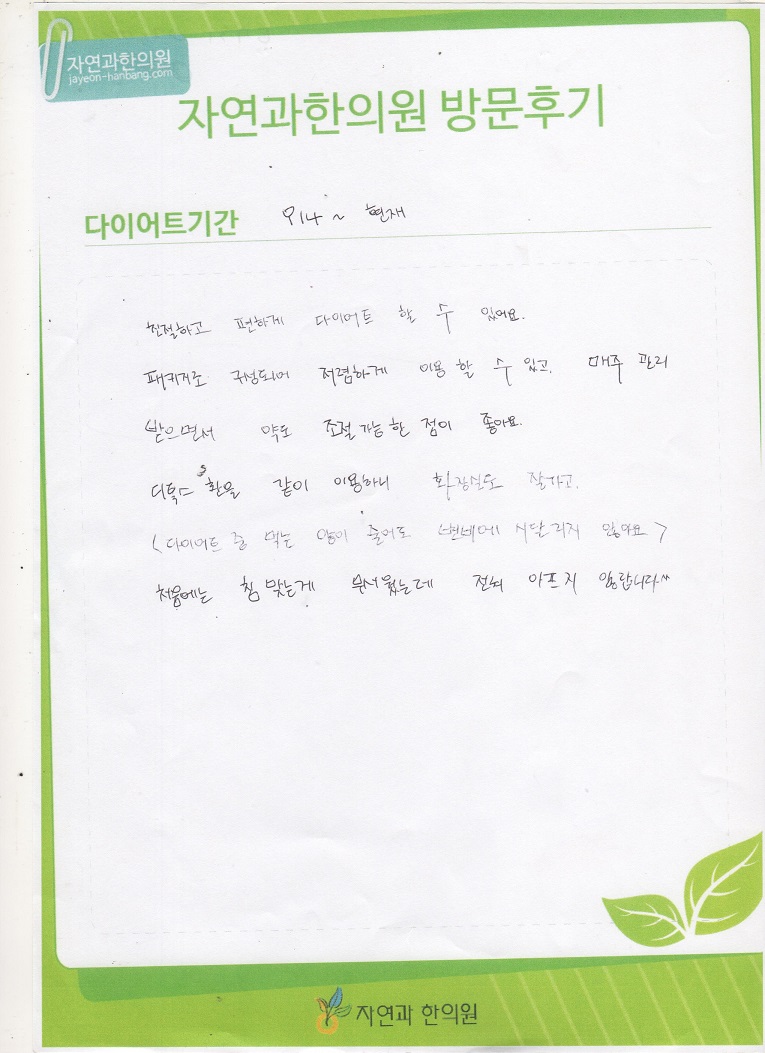 자연과한의원
jayeon-hanbang.com
자연과한의원 방문후기
다이어트기간 9/4 ~ 현재
친절하고 편하게 다이어트 할 수 있어요.
패키지로 구성되어 저렴하게 이용 할 수 있고. 매주 관리
받으면서 약도 조절 가능한 점이 좋아요.
디톡스 환을 같이 이용하니 화장실도 잘가고.
(다이어트 중 먹는 양이 줄어도 변비에 시달리지 않아요)
처음에는 침 맞는게 무서웠는데 전혀 아프지 않답니다^^
자연과 한의원